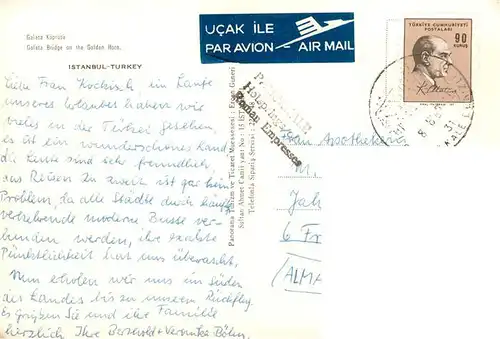 Galata Köprüsü
Galata Bridge on the Golden Horn.
ISTANBUL-TURKEY
UÇAK İLE
PAR AVION - AIR MAIL
TÜRKİYE CUMHURİYETİ
POSTALARI
90
KURUŞ
K. Atatürk
Liebe Frau Kocksch, im Laufe
unseres Urlaubes haben wir
vieles in der Türkei gesehen,
es ist ein wunderschönes Land,
die Leute sind sehr freundlich,
das Reisen zu zweit ist gar kein
Problem, da alle Städte durch häufig
verkehrende moderne Busse ver-
bunden werden, ihre exakte
Pünktlichkeit hat uns überrascht.
Nun erholen wir uns im Süden
des Landes bis zu unserem Rückflug.
Es grüßen Sie und ihre Familie
herzlich Ihre Berthold + Veronika Böhm.
Panorama Turizm ve Ticaret Müessesesi : Ergun Güneri
Roman Empresses
Frau Apothekerin
M.
Jah
6 Fr
(ALMA